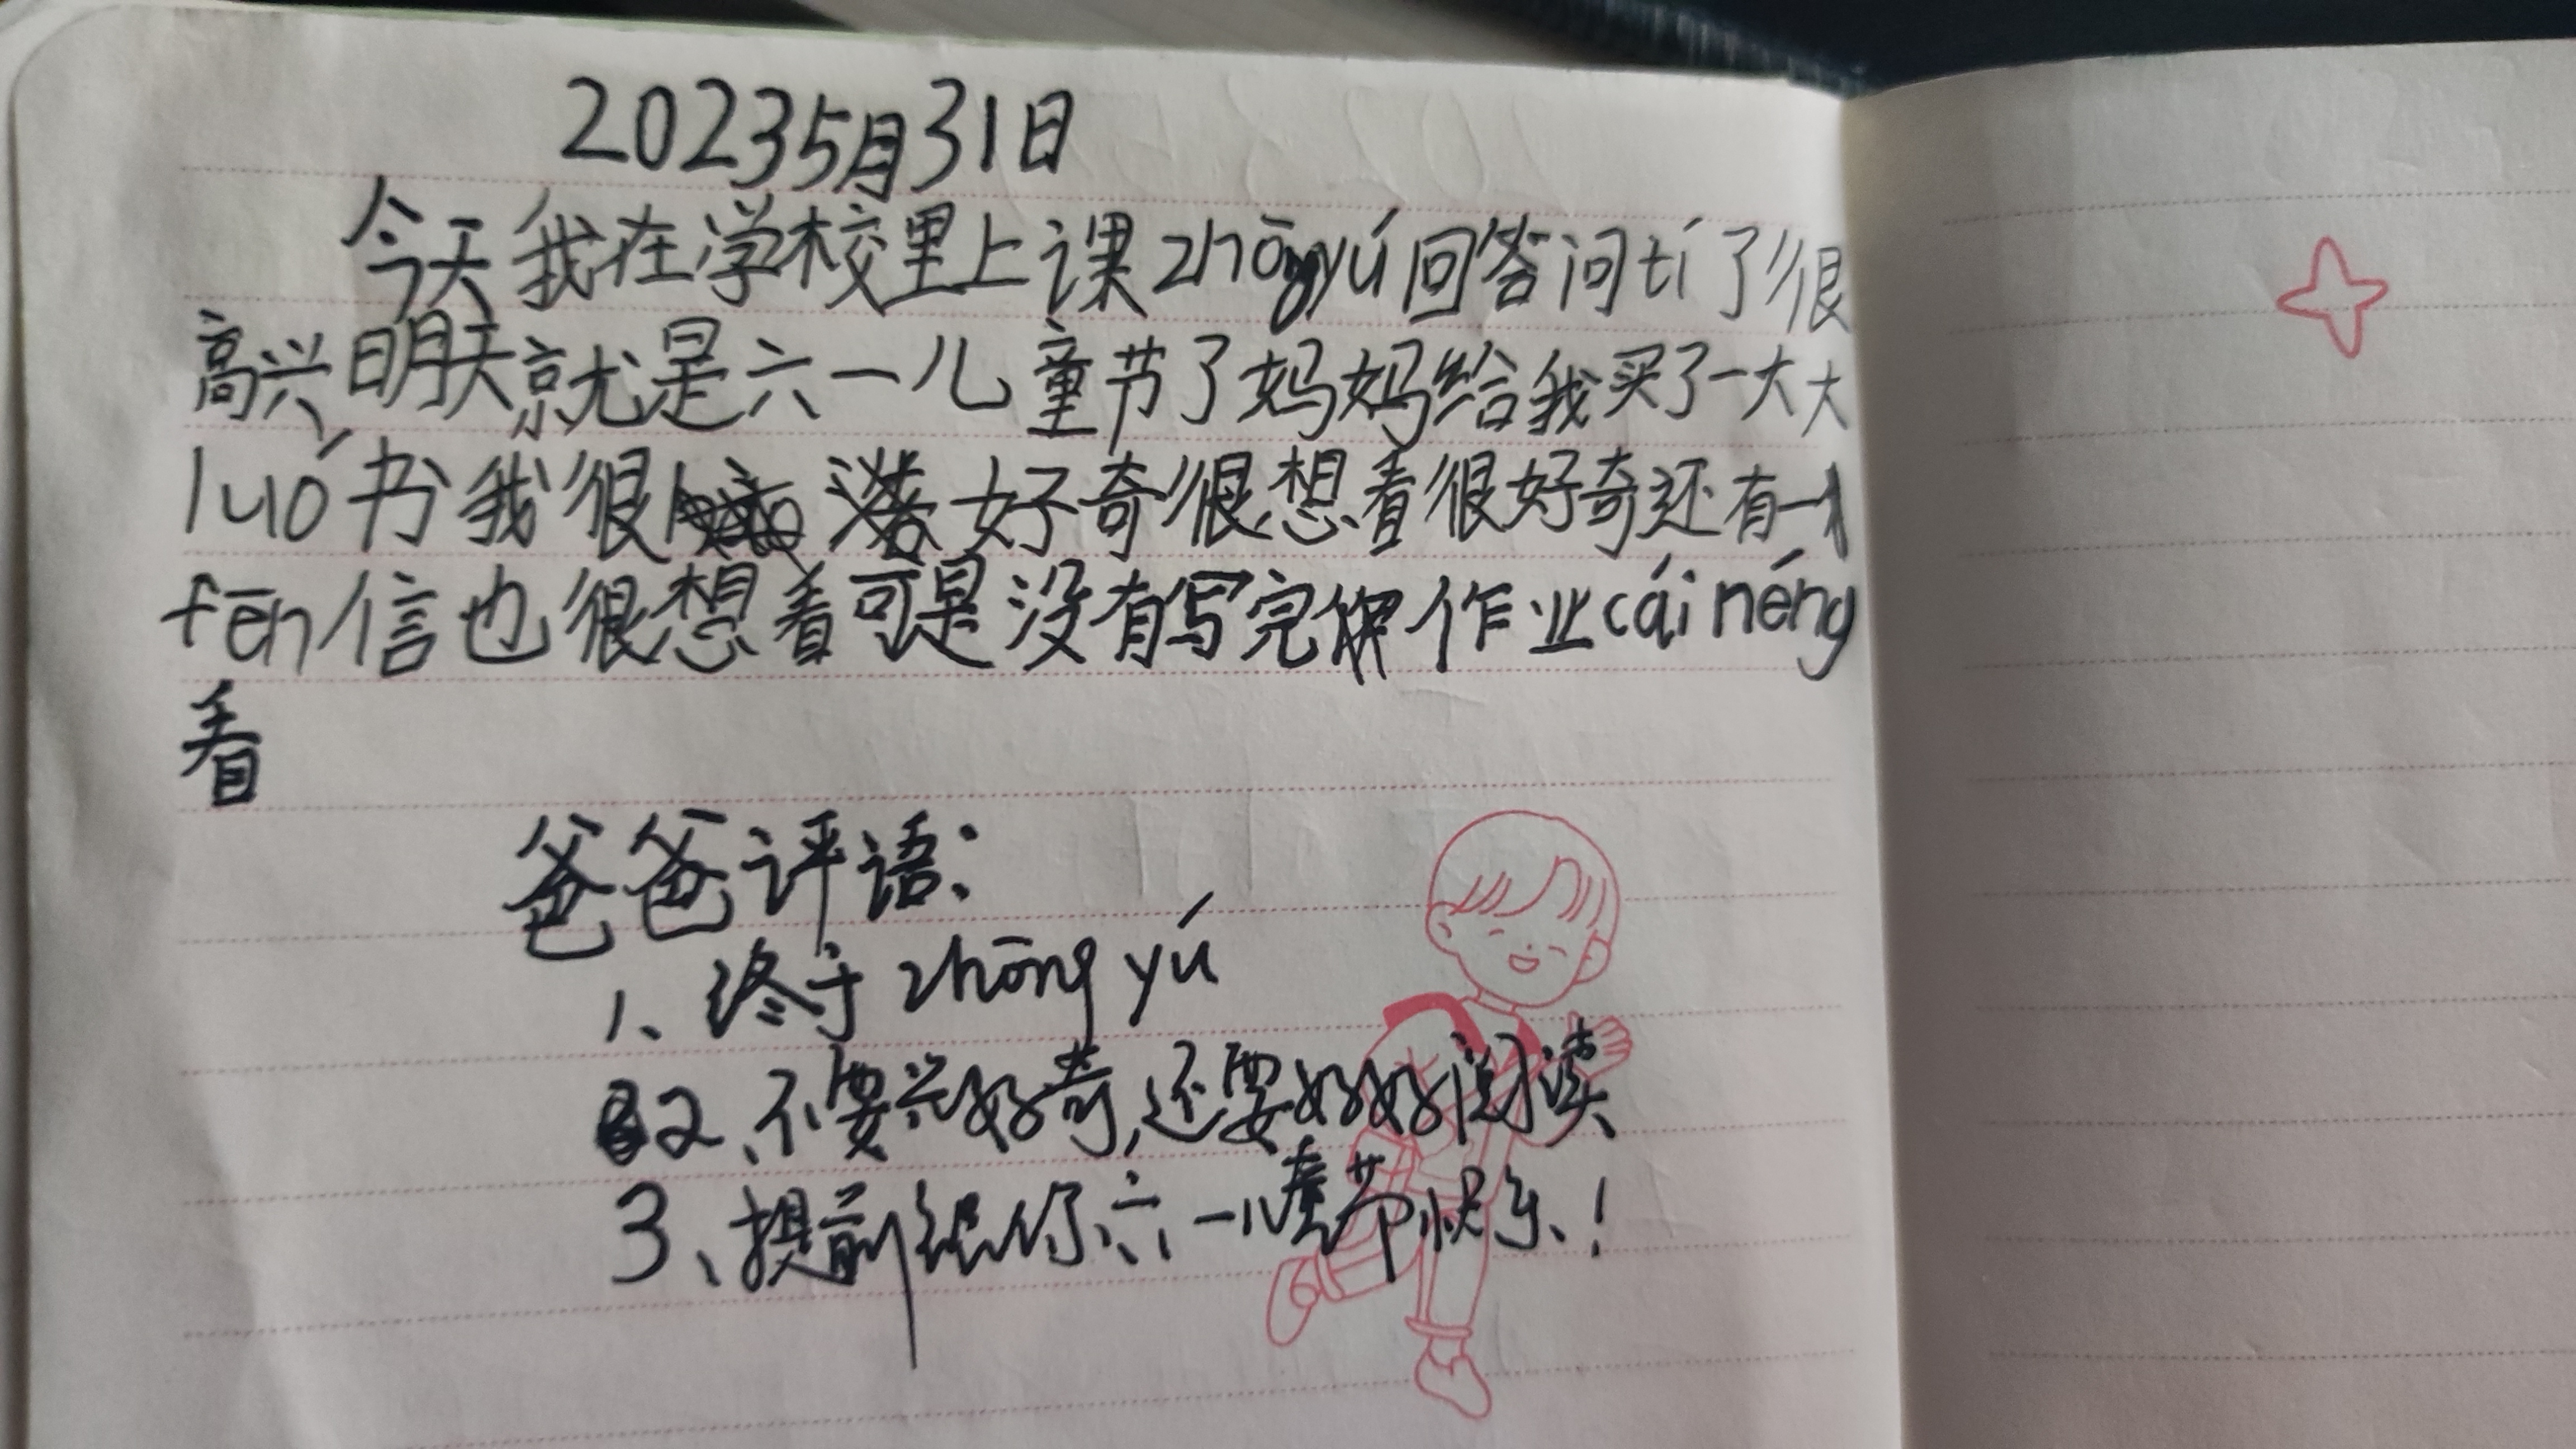 20235月31日
今天我在学校里上课zhōngyú回答问tí了很
高兴明天就是六一儿童节了妈妈给我买了一大大
luó书我很好奇很想看很好奇还有一
fēn信也很想看可是没有写完作业cái néng
看
爸爸评语:
1、终于zhōng yú
2、不要光好奇,还要好好阅读
3、提前祝你六一儿童节快乐!